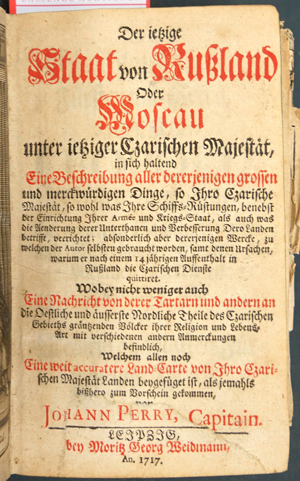 Der ietzige
Staat von Rußland
Oder
Moscau
unter ietziger Czarischen Majestät,
in sich haltend
Eine Beschreibung aller dererjenigen grossen
und merckwürdigen Dinge, so Ihro Czarische
Majestät, so wohl was Ihre Schiffs-Rüstungen, benebst
der Einrichtung Ihrer Armée und Kriegs-Staat, als auch was
die Aenderung derer Unterthanen und Verbesserung Dero Landen
betrifft, verrichtet; absonderlich aber dererjenigen Wercke, zu
welchen der Autor selbsten gebraucht worden, samt denen Ursachen,
warum er nach einem 14 jährigen Auffenthalt in
Rußland die Czarischen Dienste
quittiret.
Wobey nicht weniger auch
Eine Nachricht von derer Tartarn und andern an
die Oestliche und äusserste Nordliche Theile des Czarischen
Gebieths gräntzenden Völcker ihrer Religion und Lebens-
Art mit verschiedenen andern Anmerckungen
befindlich,
Welchem allen noch
Eine weit accuratere Land-Carte von Ihro Czari-
schen Majestät Landen beygefüget ist, als jemahls
bißhero zum Vorschein gekommen,
von
JOHANN PERRY, Capitain.
LEIPZIG,
bey Moritz Georg Weidmann,
An. 1717.